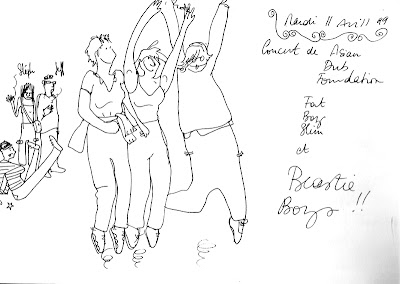 Mardi 11 Avril 99
Concert de Asian
Dub
Foundation
Fat
Boy
Slim
et
Beastie
Boys !!
Stéph